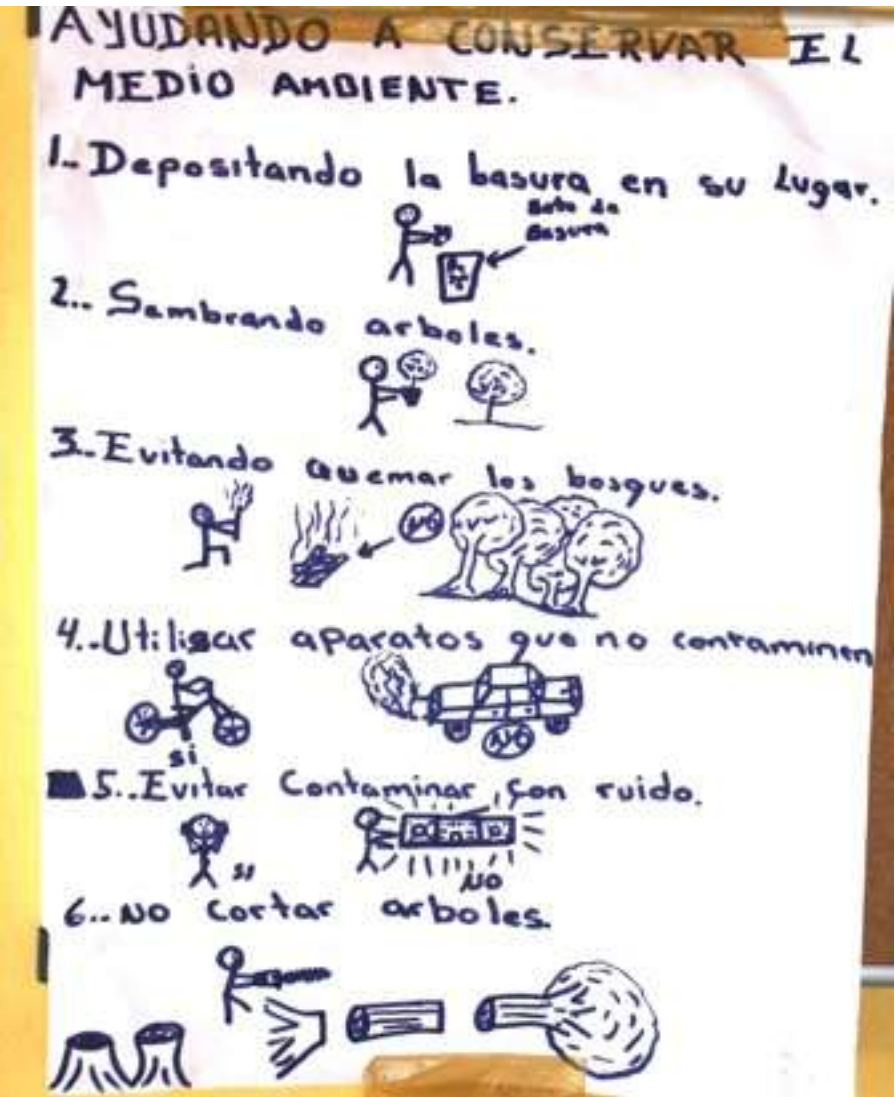 AYUDANDO A CONSERVAR EL
MEDIO AMBIENTE.
1.- Depositando la basura en su Lugar.
Bote de
Basura
2.. Sembrando arboles.
3.. Evitando quemar los bosques.
NO
4.. Utilisar aparatos que no contaminen
si
NO
5.. Evitar Contaminar con ruido.
SI
NO
6.. NO Cortar arboles.